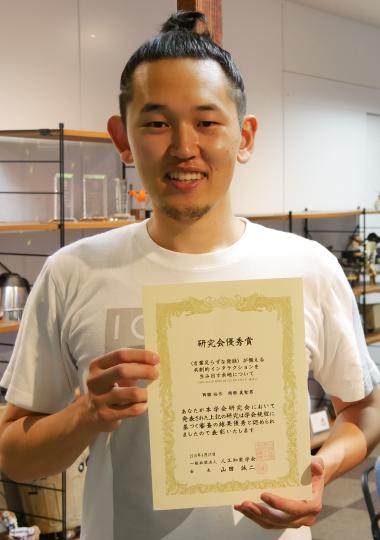 研究会優秀賞
〈言葉足らずな発話〉が備える
共創的インタラクションを
生み出す余地について
あなたが本学会研究会において
発表された上記の研究は学会規程に
基づく審査の結果優秀と認められ
ましたので表彰いたします
一般社団法人 人工知能学会
会長 山田 誠二